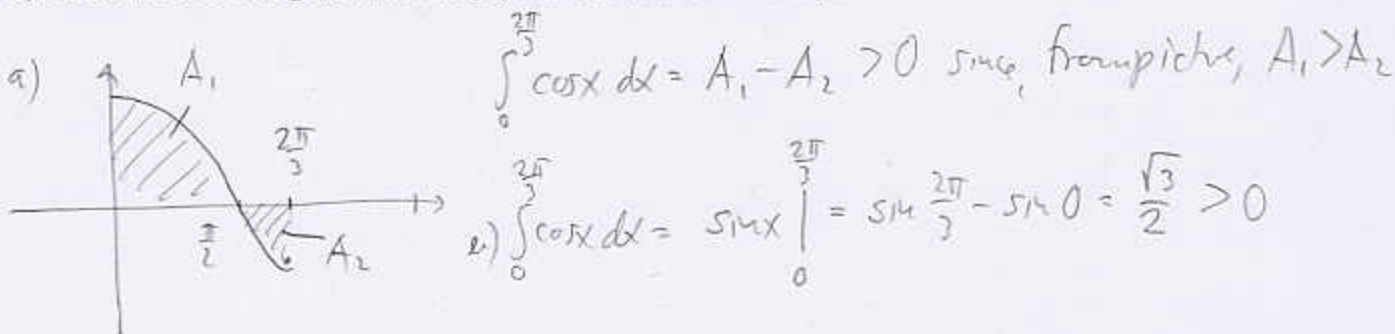 a) A₁ ∫₀^{2π/3} cosx dx = A₁ - A₂ > 0 since, from picture, A₁ > A₂
2π/3
π/2 A₂ b) ∫₀^{2π/3} cosx dx = sinx |₀^{2π/3} = sin 2π/3 - sin 0 = √3/2 > 0